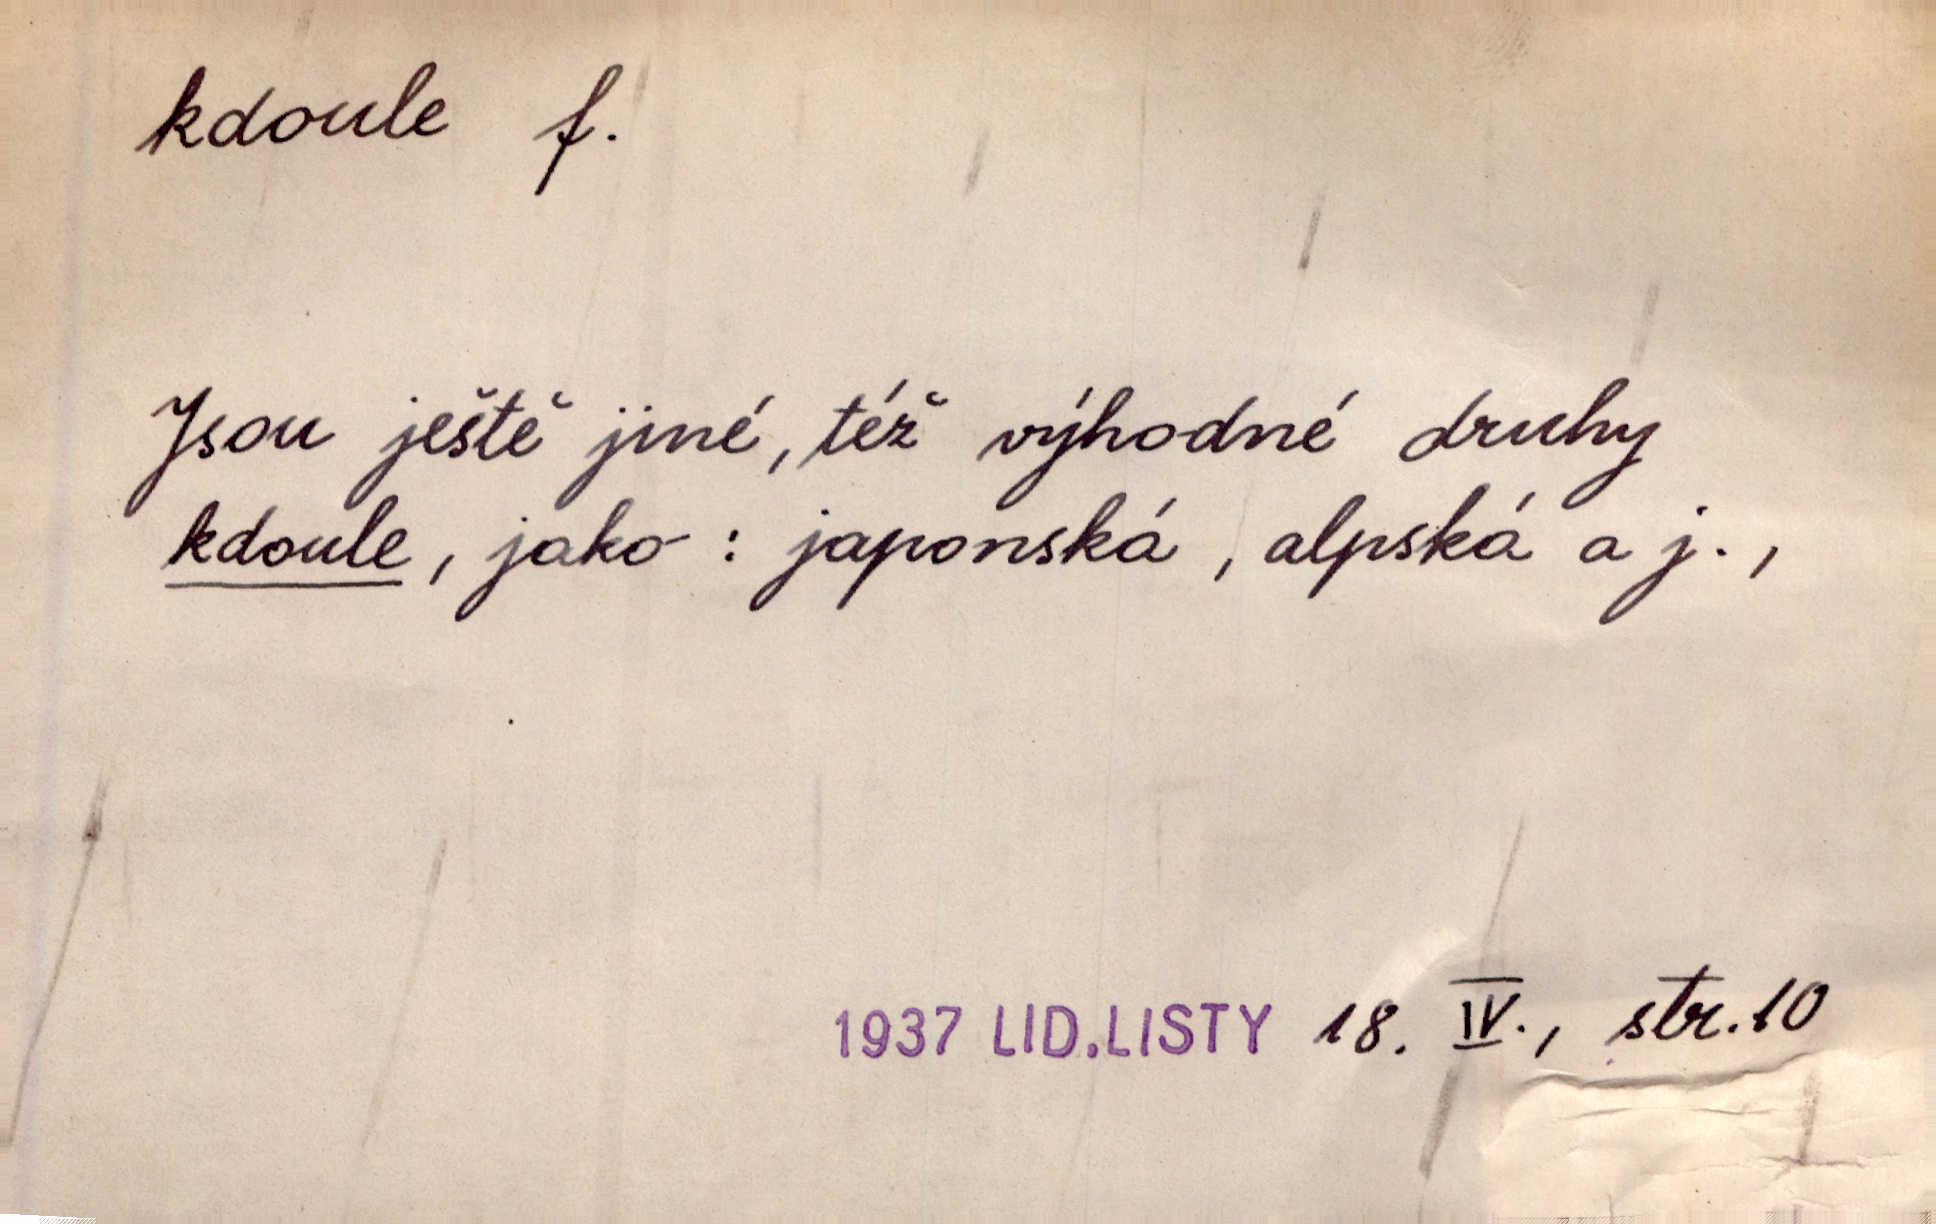 kdoule f.
Jsou ještě jiné, též výhodné druhy
kdoule, jako : japonská, alpská a j.,
1937 LID.LISTY 18. IV., str. 10